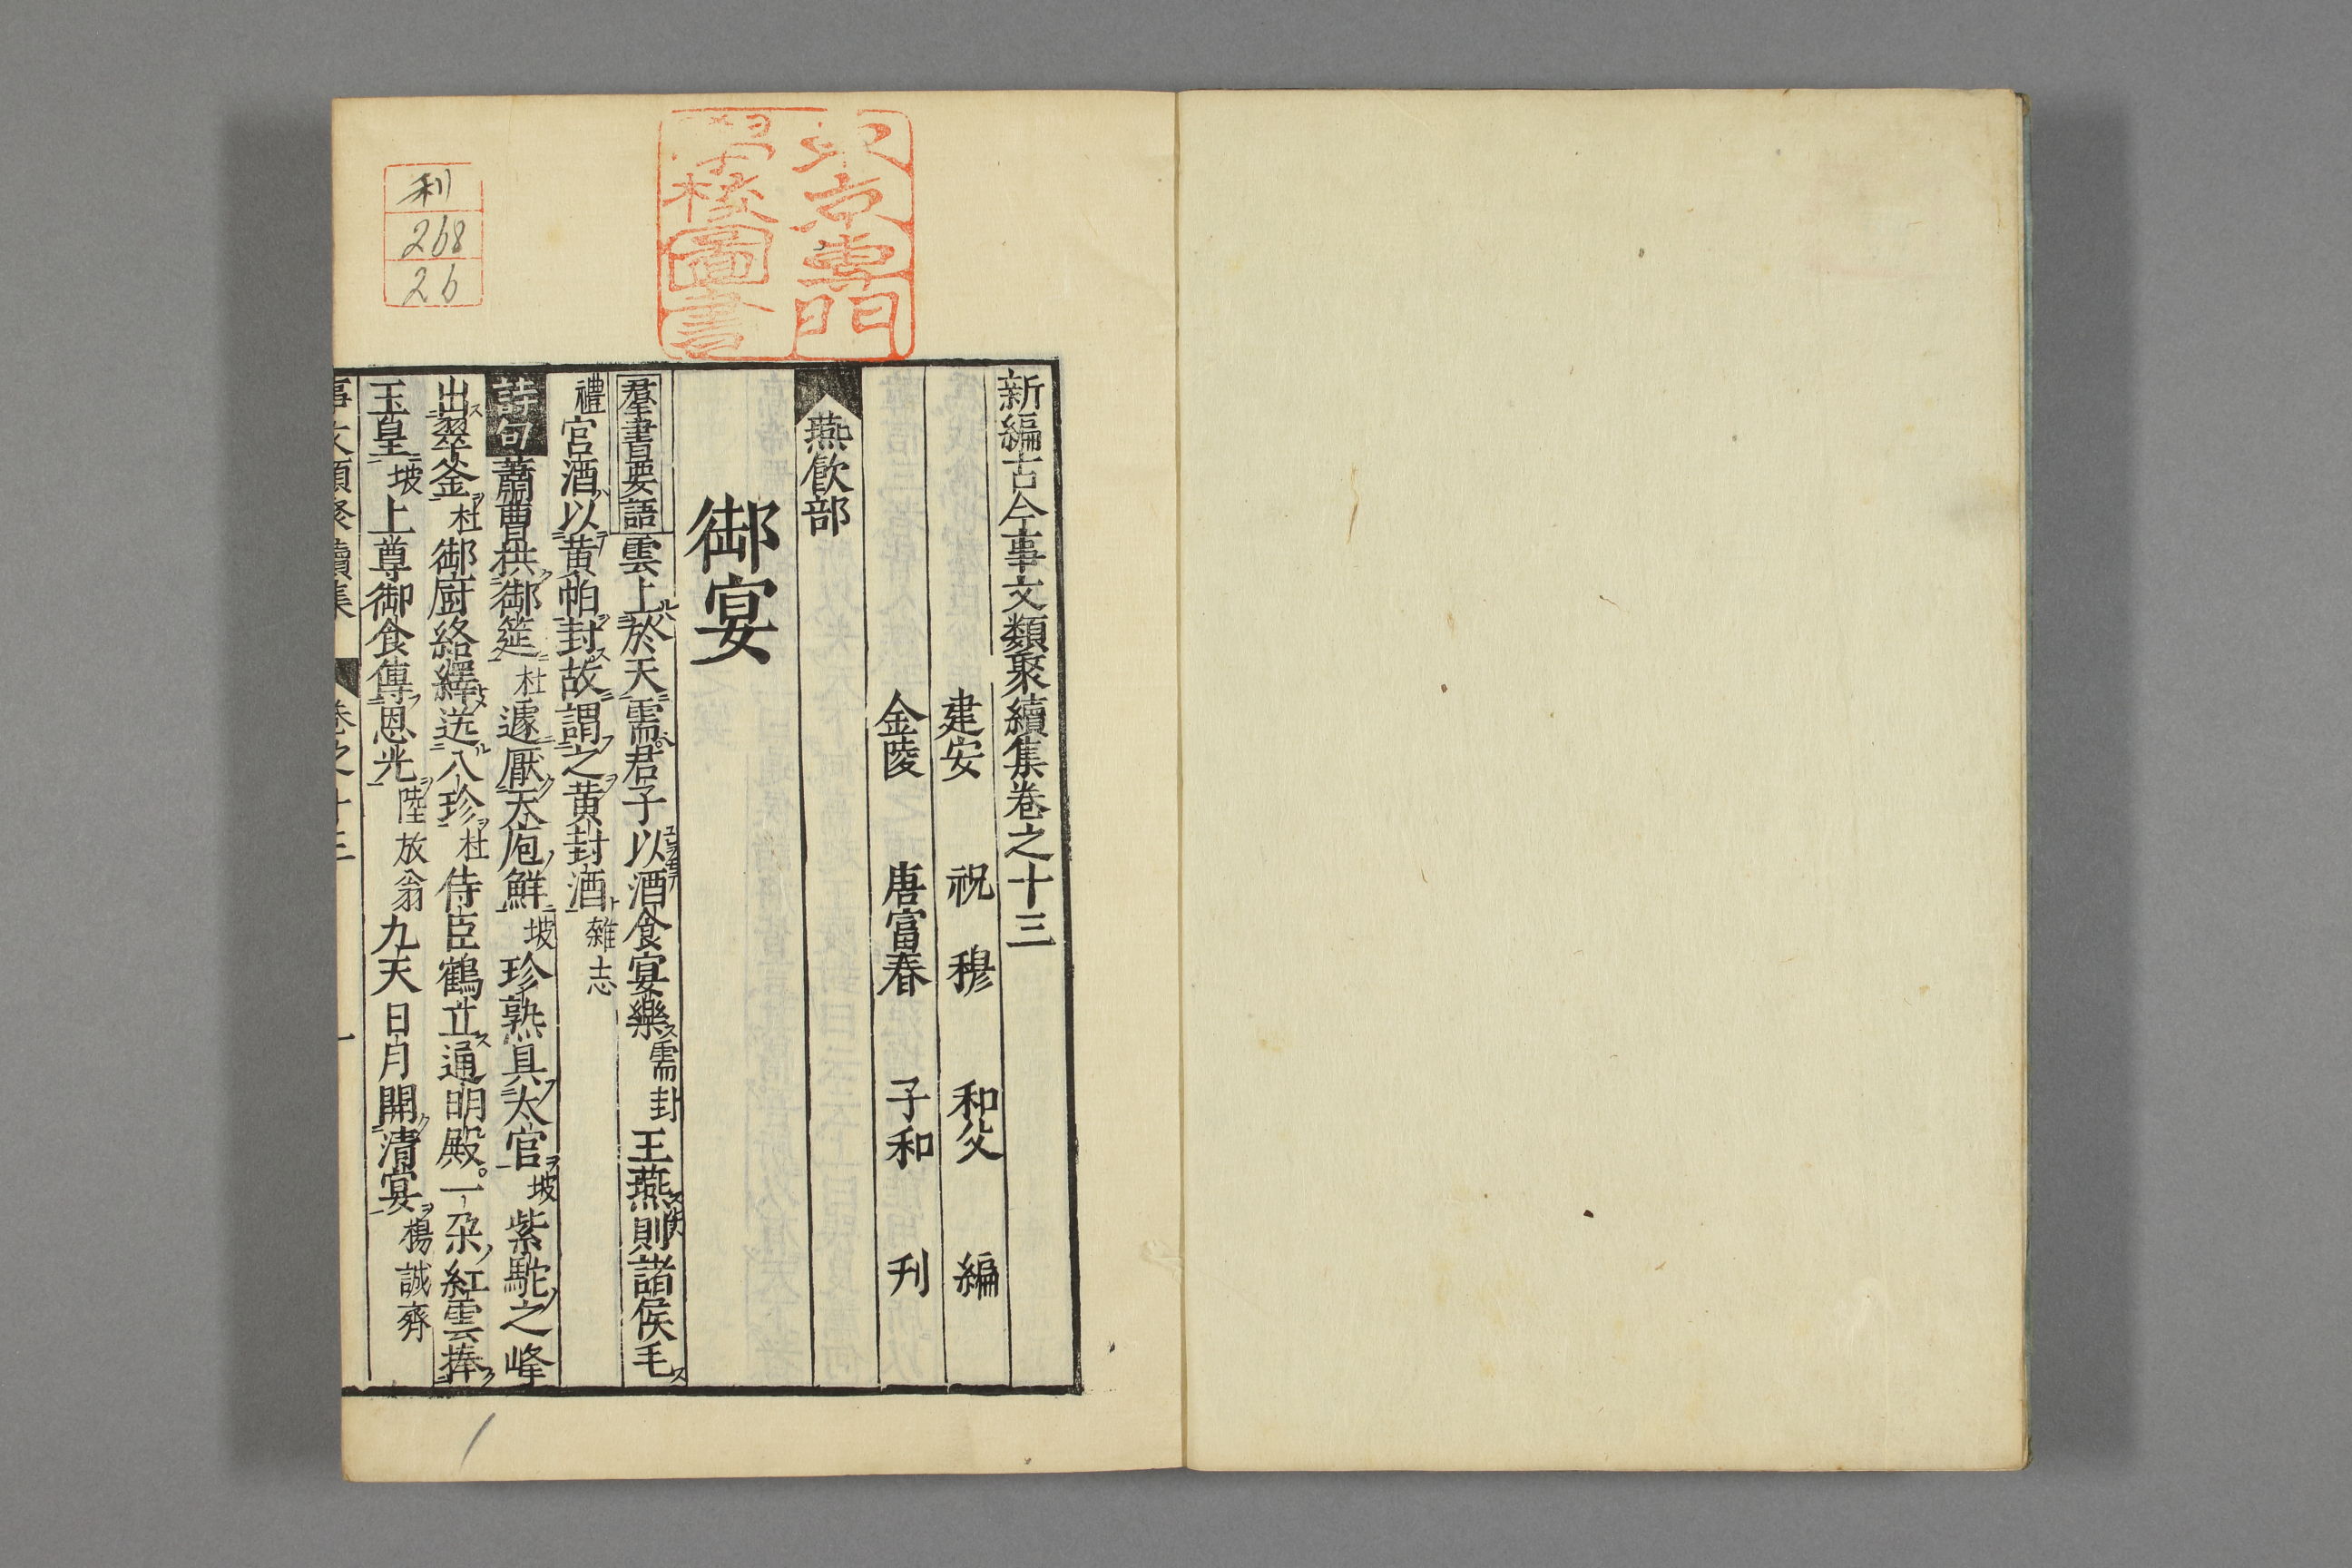 新編古今事文類聚續集卷之十三
建安　祝　穆　和父　編
金陵　唐富春　子和　刊
燕飲部
御宴
羣書要語 雲上於天需君子以酒食宴樂 需卦 王燕則諸侯毛
禮 官酒以黄帕封故謂之黄封酒 雜志
詩句 蕭曹拱御筵 杜 遽厭天庖鮮 坡 珍熟具太官 坡 紫駝之峰
出翠釜 杜 御廚絡繹送八珍 杜 侍臣鶴立通明殿一朶紅雲捧
玉皇 坡 上尊御食傳恩光 陸放翁 九天日月開清宴 楊誠齊
事文類聚續集 卷之十三 一
東京專門
學校圖書
利
268
26